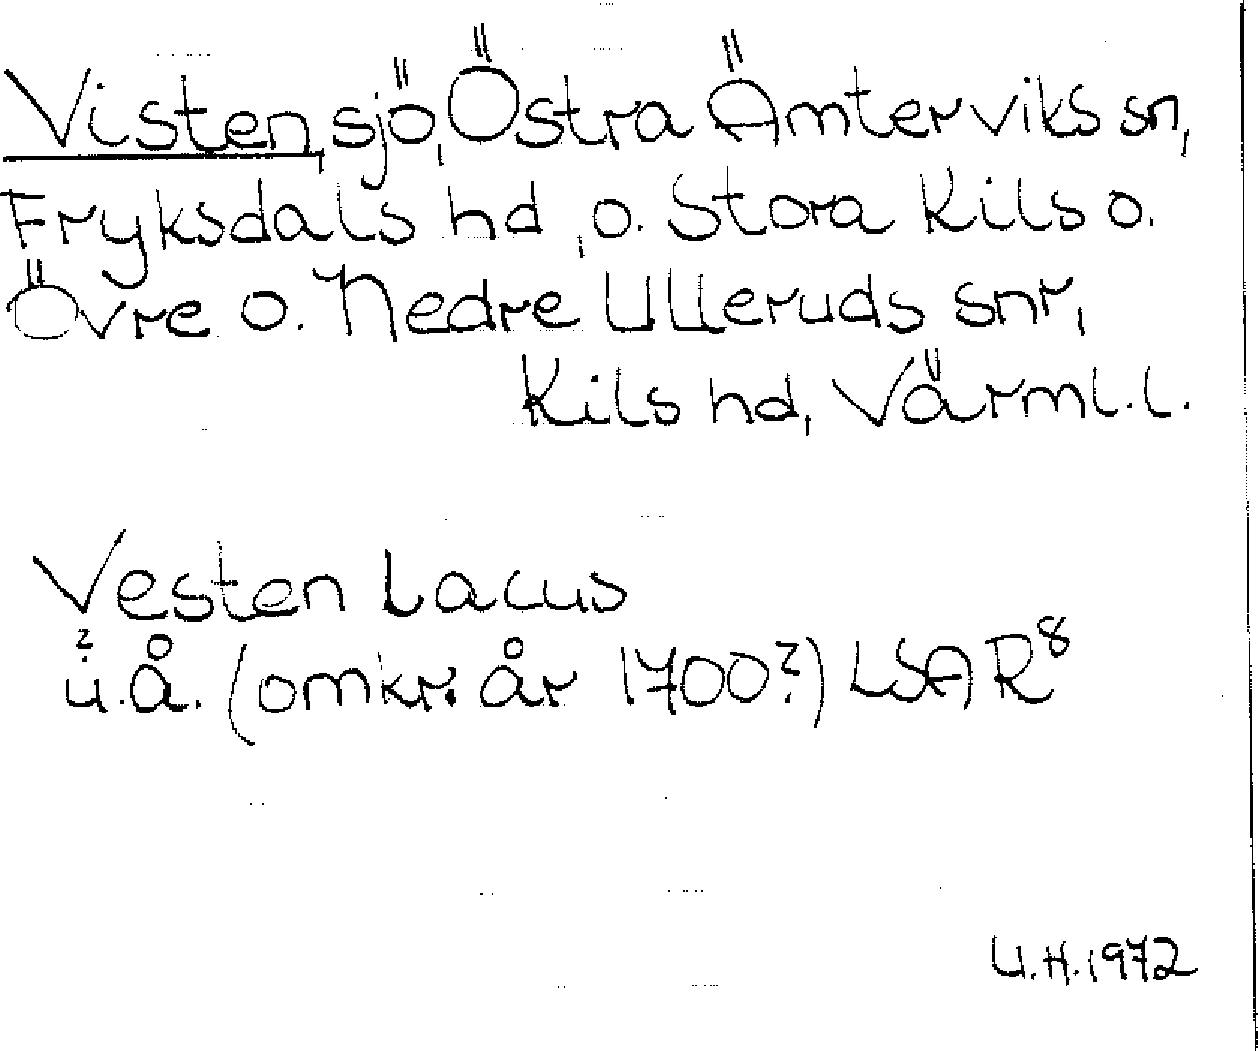 Visten, sjö, Östra Ämterviks sn,
Fryksdals hd, o. Stora Kils o.
Övre o. Nedre Ulleruds snr,
Kils hd, Värml. l.
Vesten Lacus
u.å. (omkr. år 1700?) LSAR⁸
U.H. 1972